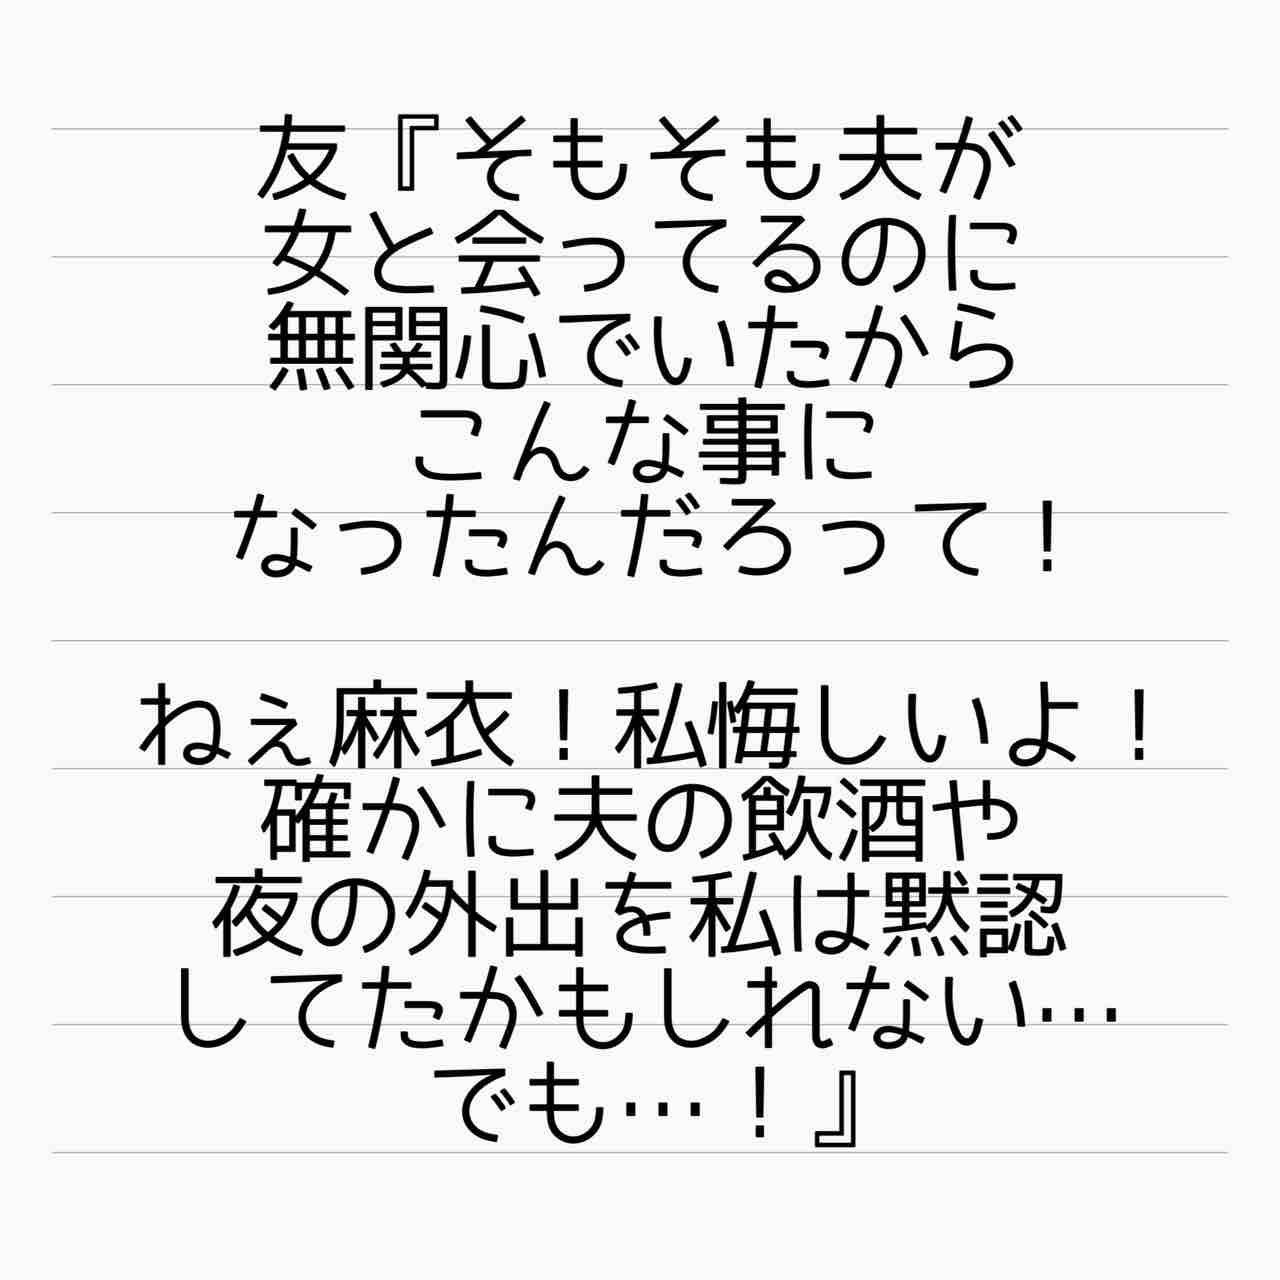 友『そもそも夫が
女と会ってるのに
無関心でいたから
こんな事に
なったんだろって！
ねぇ麻衣！私悔しいよ！
確かに夫の飲酒や
夜の外出を私は黙認
してたかもしれない…
でも…！』